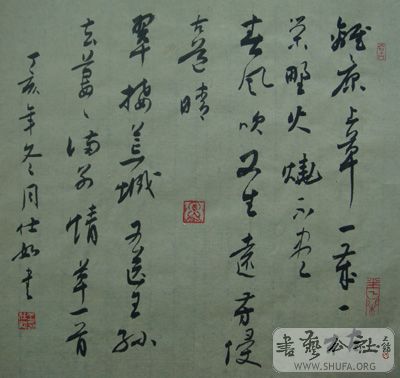 離原上草一歲一
榮野火燒不盡
春風吹又生遠芳侵
古道晴
翠接荒城又送王孫
去萋〻滿別情草一首
丁亥年冬周仕如書
書藝公社
WWW.SHUFA.ORG